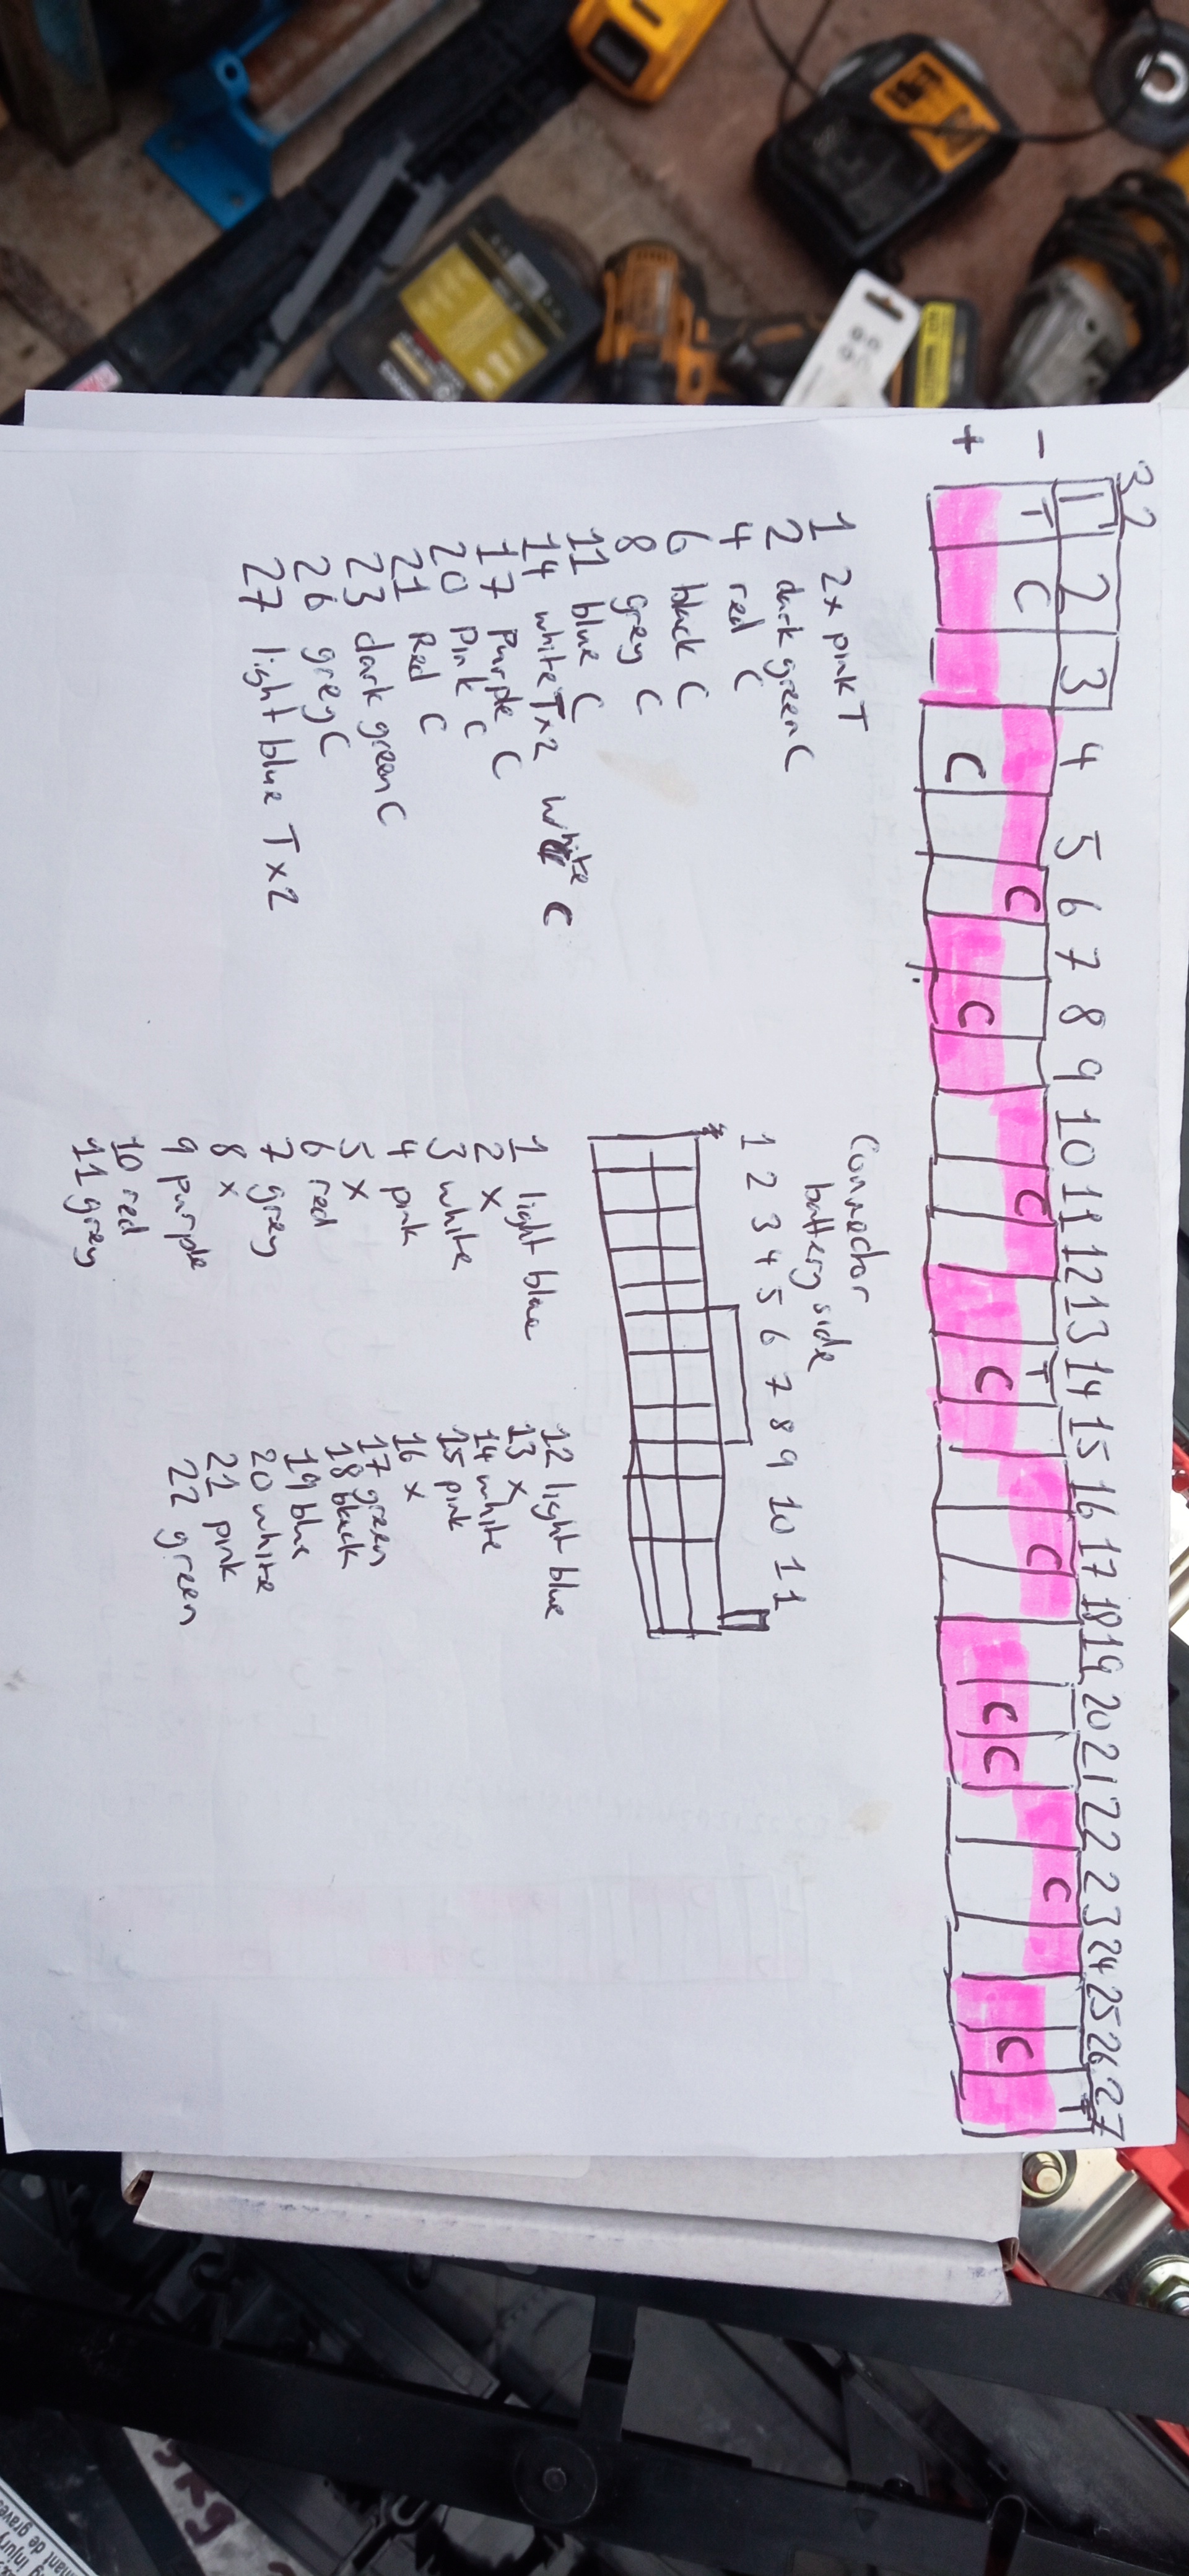 32
1 2 3 4 5 6 7 8 9 10 11 12 13 14 15 16 17 18 19 20 21 22 23 24 25 26 27
- T C C C T C C T
+ C C C C C C
1 2x pink T
2 dark green C
4 red C
6 black C
8 grey C
11 blue C
14 white T x2 white C
17 purple C
20 pink C
21 Red C
23 dark green C
26 grey C
27 light blue T x2
Connector
battery side
1 2 3 4 5 6 7 8 9 10 11
*
1 light blue
2 x
3 white
4 pink
5 x
6 red
7 grey
8 x
9 purple
10 red
11 grey
12 light blue
13 x
14 white
15 pink
16 x
17 green
18 black
19 blue
20 white
21 pink
22 green